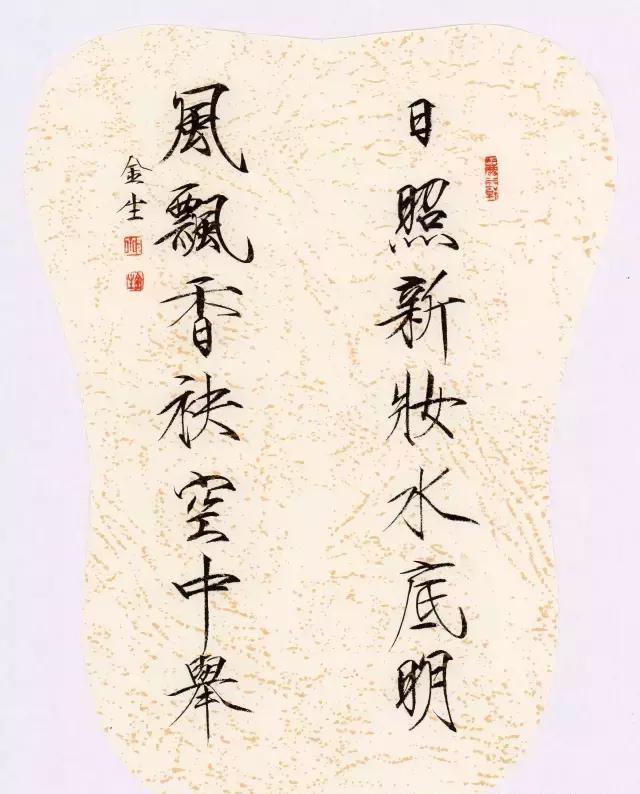 日照新妝水底明
風飄香袂空中舉
金生